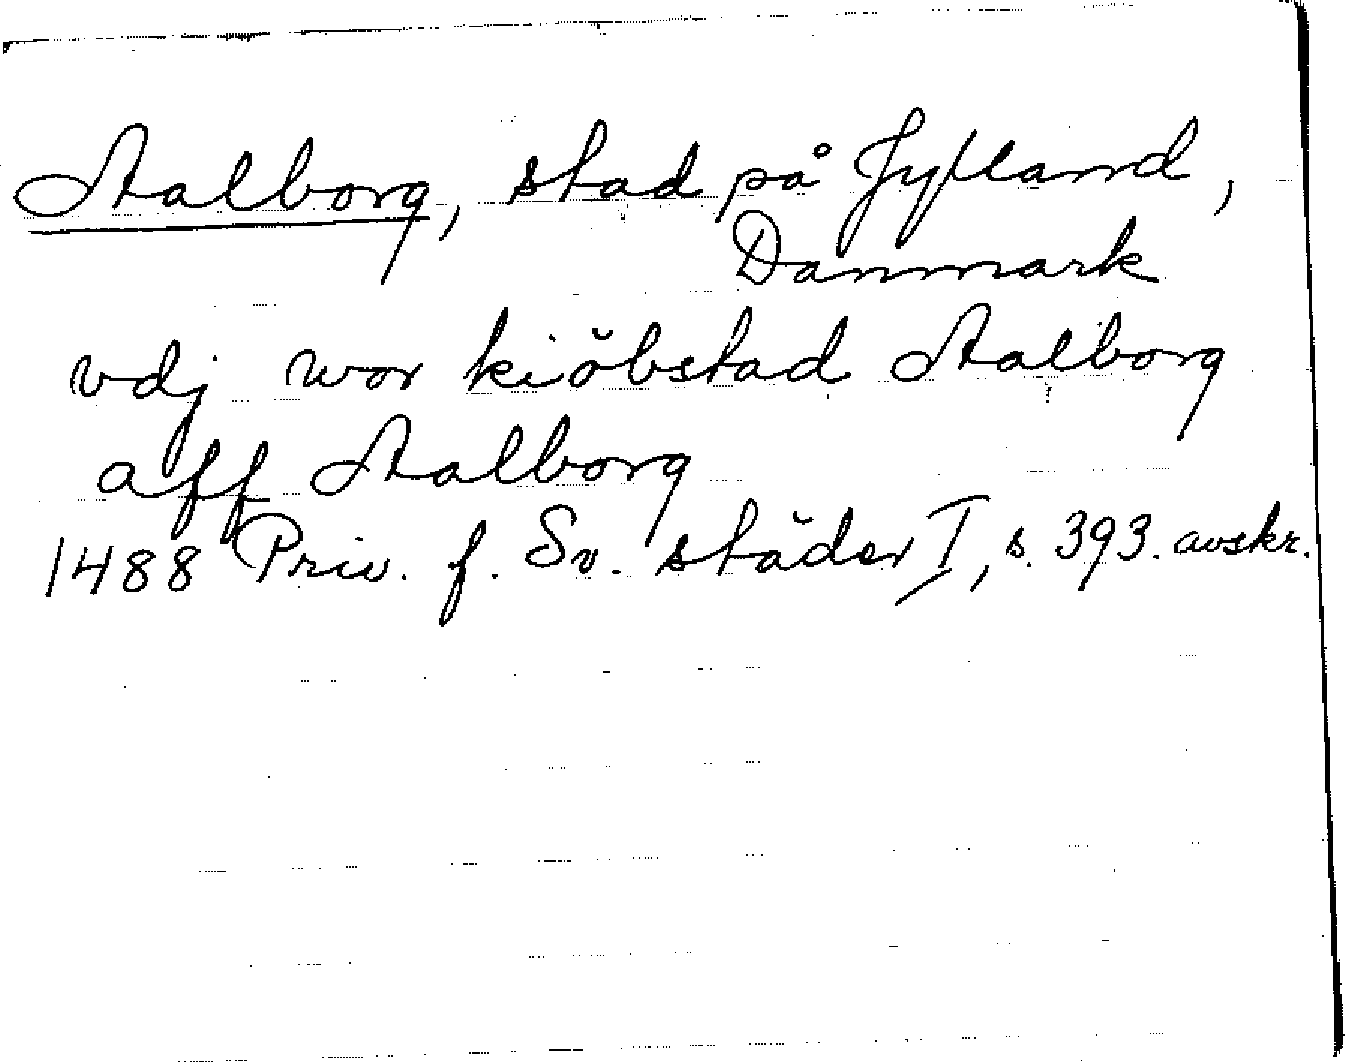 Aalborg, stad på Jylland,
Danmark
vdj wor kiöbstad Aalborg
aff Aalborg
1488 Priv. f. Sv. städer I, s. 393. avskr.